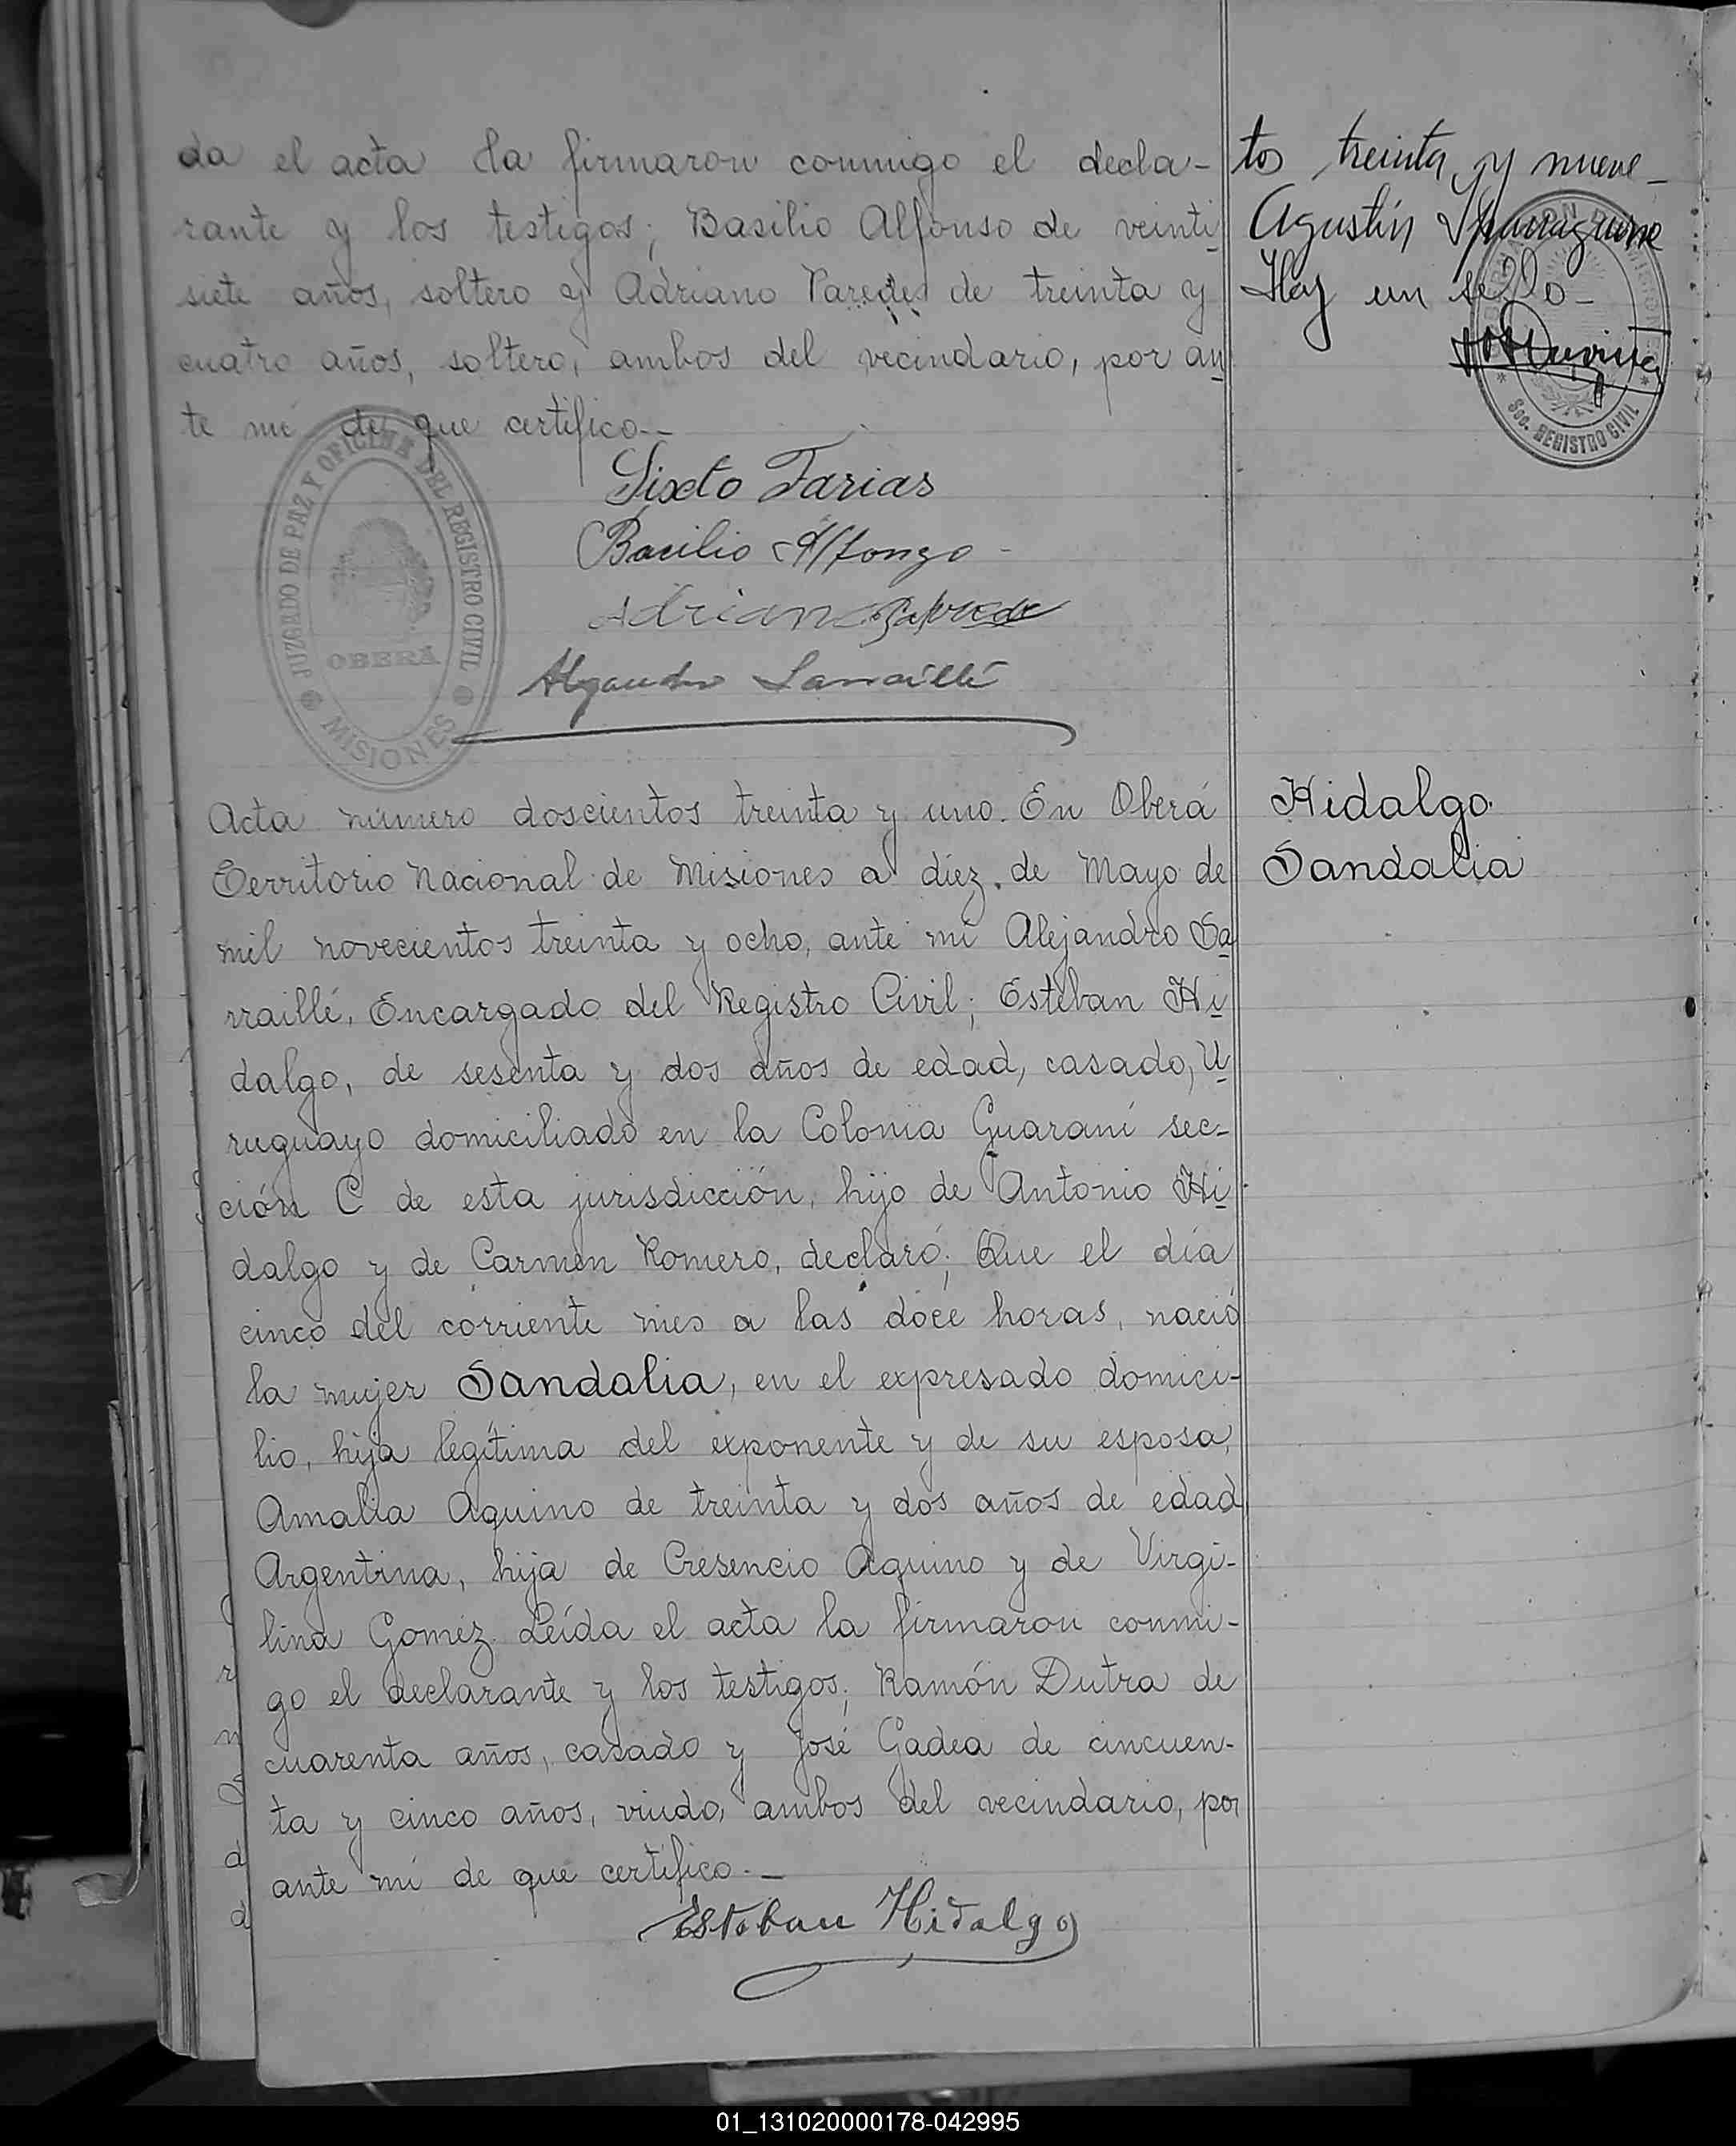 da el acta la firmaron conmigo el decla-
rante y los testigos; Basilio Alfonso de veinti
siete años, soltero y Adriano Paredes de treinta y
cuatro años, soltero, ambos del vecindario, por an
te mí de que certifico.-
Sixto Farias
Bacilio Alfonzo
Adriano
JUZGADO DE PAZ Y OFICINA DEL REGISTRO CIVIL
OBERÁ
MISIONES
tos treinta y nueve_
Agustín
Hay un sello_
Soc. REGISTRO CIVIL
Acta número doscientos treinta y uno. En Oberá
Territorio Nacional de Misiones a diez de Mayo de
mil novecientos treinta y ocho, ante mí Alejandro Sa
rraillé, Encargado del Registro Civil; Esteban Hi
dalgo, de sesenta y dos años de edad, casado, U
ruguayo domiciliado en la Colonia Guaraní sec-
ción C de esta jurisdicción, hijo de Antonio Hi
dalgo y de Carmen Romero, declaró; Que el día
cinco del corriente mes a las doce horas, nació
la mujer Sandalia, en el expresado domici-
lio, hija legítima del exponente y de su esposa,
Amalia Aquino de treinta y dos años de edad
Argentina, hija de Cresencio Aquino y de Virgi-
lina Gomez. Leída el acta la firmaron conmi-
go el declarante y los testigos; Ramón Dutra de
cuarenta años, casado y José Gadea de cincuen-
ta y cinco años, viudo, ambos del vecindario, por
ante mí de que certifico.-
Esteban Hidalgo
Hidalgo
Sandalia
01_131020000178-042995